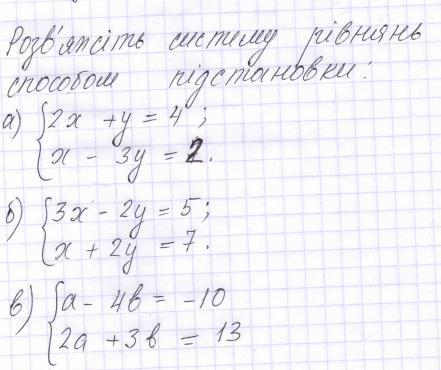 Розв'яжіть систему рівнянь
способом підстановки:
а) { 2x + y = 4 ;
x - 3y = 2.
б) { 3x - 2y = 5 ;
x + 2y = 7.
в) { a - 4b = -10
2a + 3b = 13